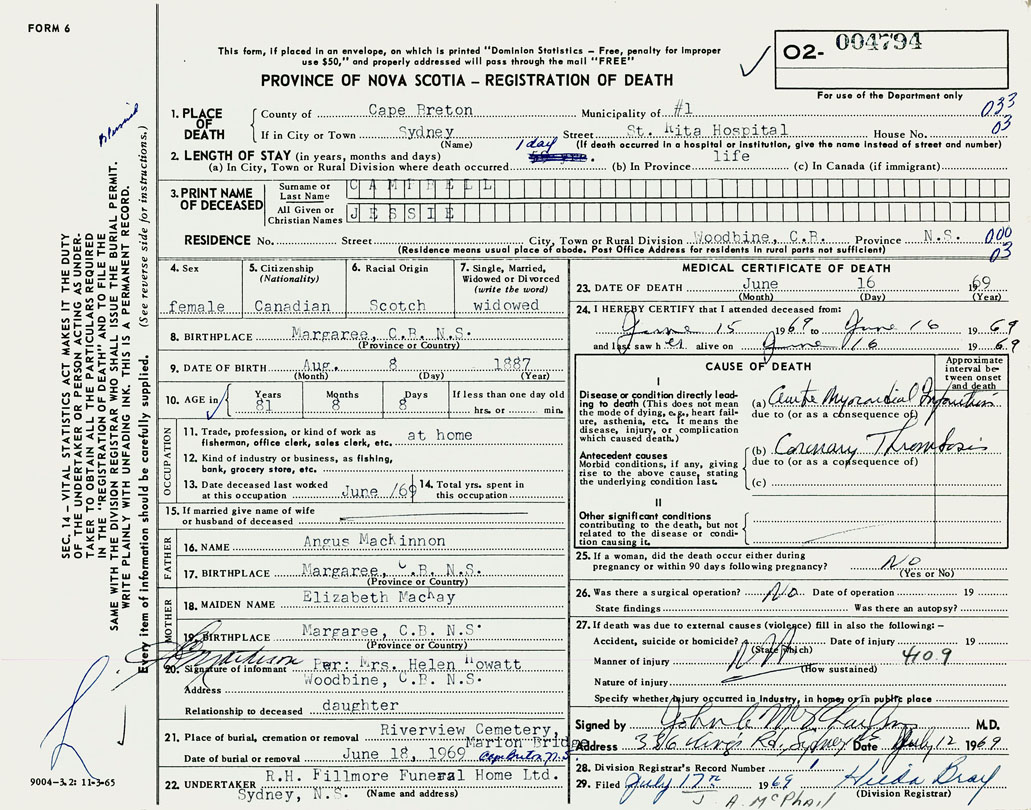 FORM 6
This form, if placed in an envelope, on which is printed "Dominion Statistics – Free, penalty for improper
use $50," and properly addressed will pass through the mail "FREE"
PROVINCE OF NOVA SCOTIA – REGISTRATION OF DEATH
02- 004794
For use of the Department only
SEC. 14 – VITAL STATISTICS ACT MAKES IT THE DUTY
OF THE UNDERTAKER OR PERSON ACTING AS UNDER-
TAKER TO OBTAIN ALL THE PARTICULARS REQUIRED
IN THE "REGISTRATION OF DEATH" AND TO FILE THE
SAME WITH THE DIVISION REGISTRAR WHO SHALL ISSUE THE BURIAL PERMIT.
WRITE PLAINLY WITH UNFADING INK. THIS IS A PERMANENT RECORD.
Every item of information should be carefully supplied. (See reverse side for instructions.)
1. PLACE OF DEATH
County of Cape Breton Municipality of #1 033
If in City or Town Sydney Street St. Rita Hospital House No. 03
(Name) (If death occurred in a hospital or institution, give the name instead of street and number)
2. LENGTH OF STAY (in years, months and days) 1 day
(a) In City, Town or Rural Division where death occurred (b) In Province life (c) In Canada (if immigrant)
3. PRINT NAME OF DECEASED
Surname or Last Name CAMPBELL
All Given or Christian Names JESSIE
RESIDENCE No. Street City, Town or Rural Division Woodbine, C.B. Province N.S. 000
(Residence means usual place of abode. Post Office Address for residents in rural parts not sufficient) 03
4. Sex
female
5. Citizenship
(Nationality)
Canadian
6. Racial Origin
Scotch
7. Single, Married,
Widowed or Divorced
(write the word)
widowed
8. BIRTHPLACE Margaree, C.B. N.S.
(Province or Country)
9. DATE OF BIRTH Aug. 8 1887
(Month) (Day) (Year)
10. AGE in
Years Months Days If less than one day old
81 8 8 hrs. or min.
OCCUPATION
11. Trade, profession, or kind of work as
fisherman, office clerk, sales clerk, etc. at home
12. Kind of industry or business, as fishing,
bank, grocery store, etc.
13. Date deceased last worked
at this occupation June /69
14. Total yrs. spent in
this occupation
15. If married give name of wife
or husband of deceased
FATHER
16. NAME Angus MacKinnon
17. BIRTHPLACE Margaree, C.B. N.S.
(Province or Country)
MOTHER
18. MAIDEN NAME Elizabeth MacKay
19. BIRTHPLACE Margaree, C.B N.S.
(Province or Country)
20. Signature of informant Per: Mrs. Helen Howatt
Address Woodbine, C.B. N.S.
Relationship to deceased daughter
21. Place of burial, cremation or removal Riverview Cemetery,
Marion Bridge
Date of burial or removal June 18, 1969 Cape Breton N.S
22. UNDERTAKER R.H. Fillmore Funeral Home Ltd.
Sydney, N.S. (Name and address)
9004–3.2: 11-3-65
MEDICAL CERTIFICATE OF DEATH
23. DATE OF DEATH June 16 1969
(Month) (Day) (Year)
24. I HEREBY CERTIFY that I attended deceased from:
June 15 1969 to June 16 1969
and last saw her alive on June 16 1969
CAUSE OF DEATH
Approximate
interval be-
tween onset
and death
I
Disease or condition directly lead-
ing to death (This does not mean
the mode of dying, e.g., heart fail-
ure, asthenia, etc. It means the
disease, injury, or complication
which caused death.)
(a) Acute Myocardial Infarction
due to (or as a consequence of)
Antecedent causes
Morbid conditions, if any, giving
rise to the above cause, stating
the underlying condition last.
(b) Coronary Thrombosis
due to (or as a consequence of)
(c)
II
Other significant conditions
contributing to the death, but not
related to the disease or condi-
tion causing it.
25. If a woman, did the death occur either during
pregnancy or within 90 days following pregnancy? NO
(Yes or No)
26. Was there a surgical operation? No Date of operation 19
State findings Was there an autopsy?
27. If death was due to external causes (violence) fill in also the following: –
Accident, suicide or homicide? Date of injury 19
(State which)
Manner of injury 4109
(How sustained)
Nature of injury
Specify whether injury occurred in Industry, in home, or in public place
Signed by M.D.
Address 336 Kings Rd, Sydney Date July 12 1969
28. Division Registrar's Record Number
29. Filed July 17th 1969 Hilda Bray
(Division Registrar)
J. A. McPhail